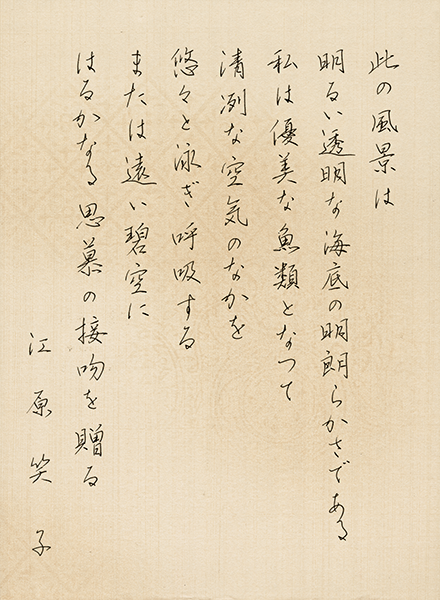 此の風景は
明るい透明な海底の明朗らかさである
私は優美な魚類となつて
清冽な空気のなかを
悠々と泳ぎ呼吸する
または遠い碧空に
はるかなる思慕の接吻を贈る
江原笑子